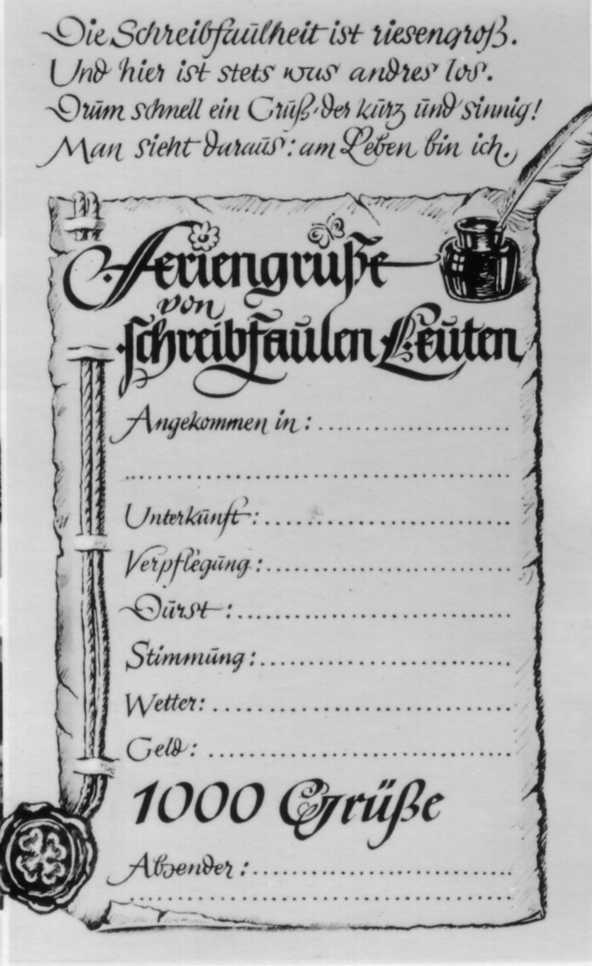 Die Schreibfaulheit ist riesengroß.
Und hier ist stets was andres los.
Drum schnell ein Gruß, der kurz und sinnig!
Man sieht daraus: am Leben bin ich.
Feriengrüße
von
schreibfaulen Leuten
Angekommen in: ....................
........................................
Unterkunft: ..........................
Verpflegung: .........................
Durst: ..............................
Stimmung: ..........................
Wetter: .............................
Geld: ...............................
1000 Grüße
Absender: ..........................
........................................